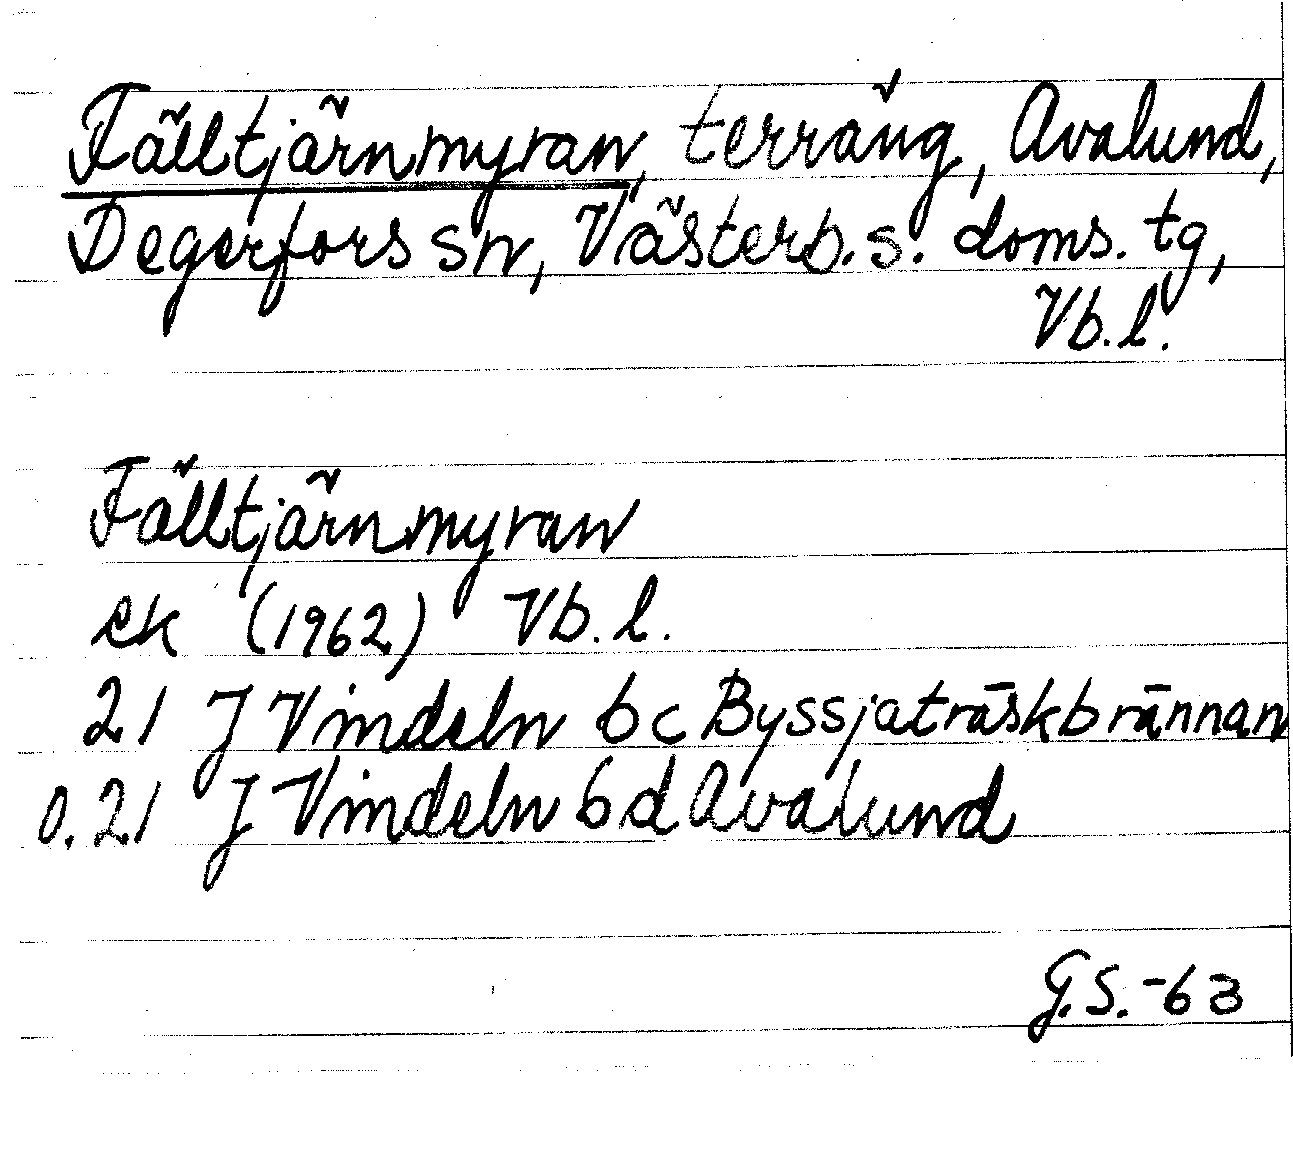 Fälltjärnmyran, terräng, Avalund,
Degerfors sn, Västerb. s. doms. tg,
Vb. l.
Fälltjärnmyran
ek (1962) Vb. l.
21 J Vindeln b c Byssjaträskbrännan
o. 21 J Vindeln b d Avalund
G.S. -63